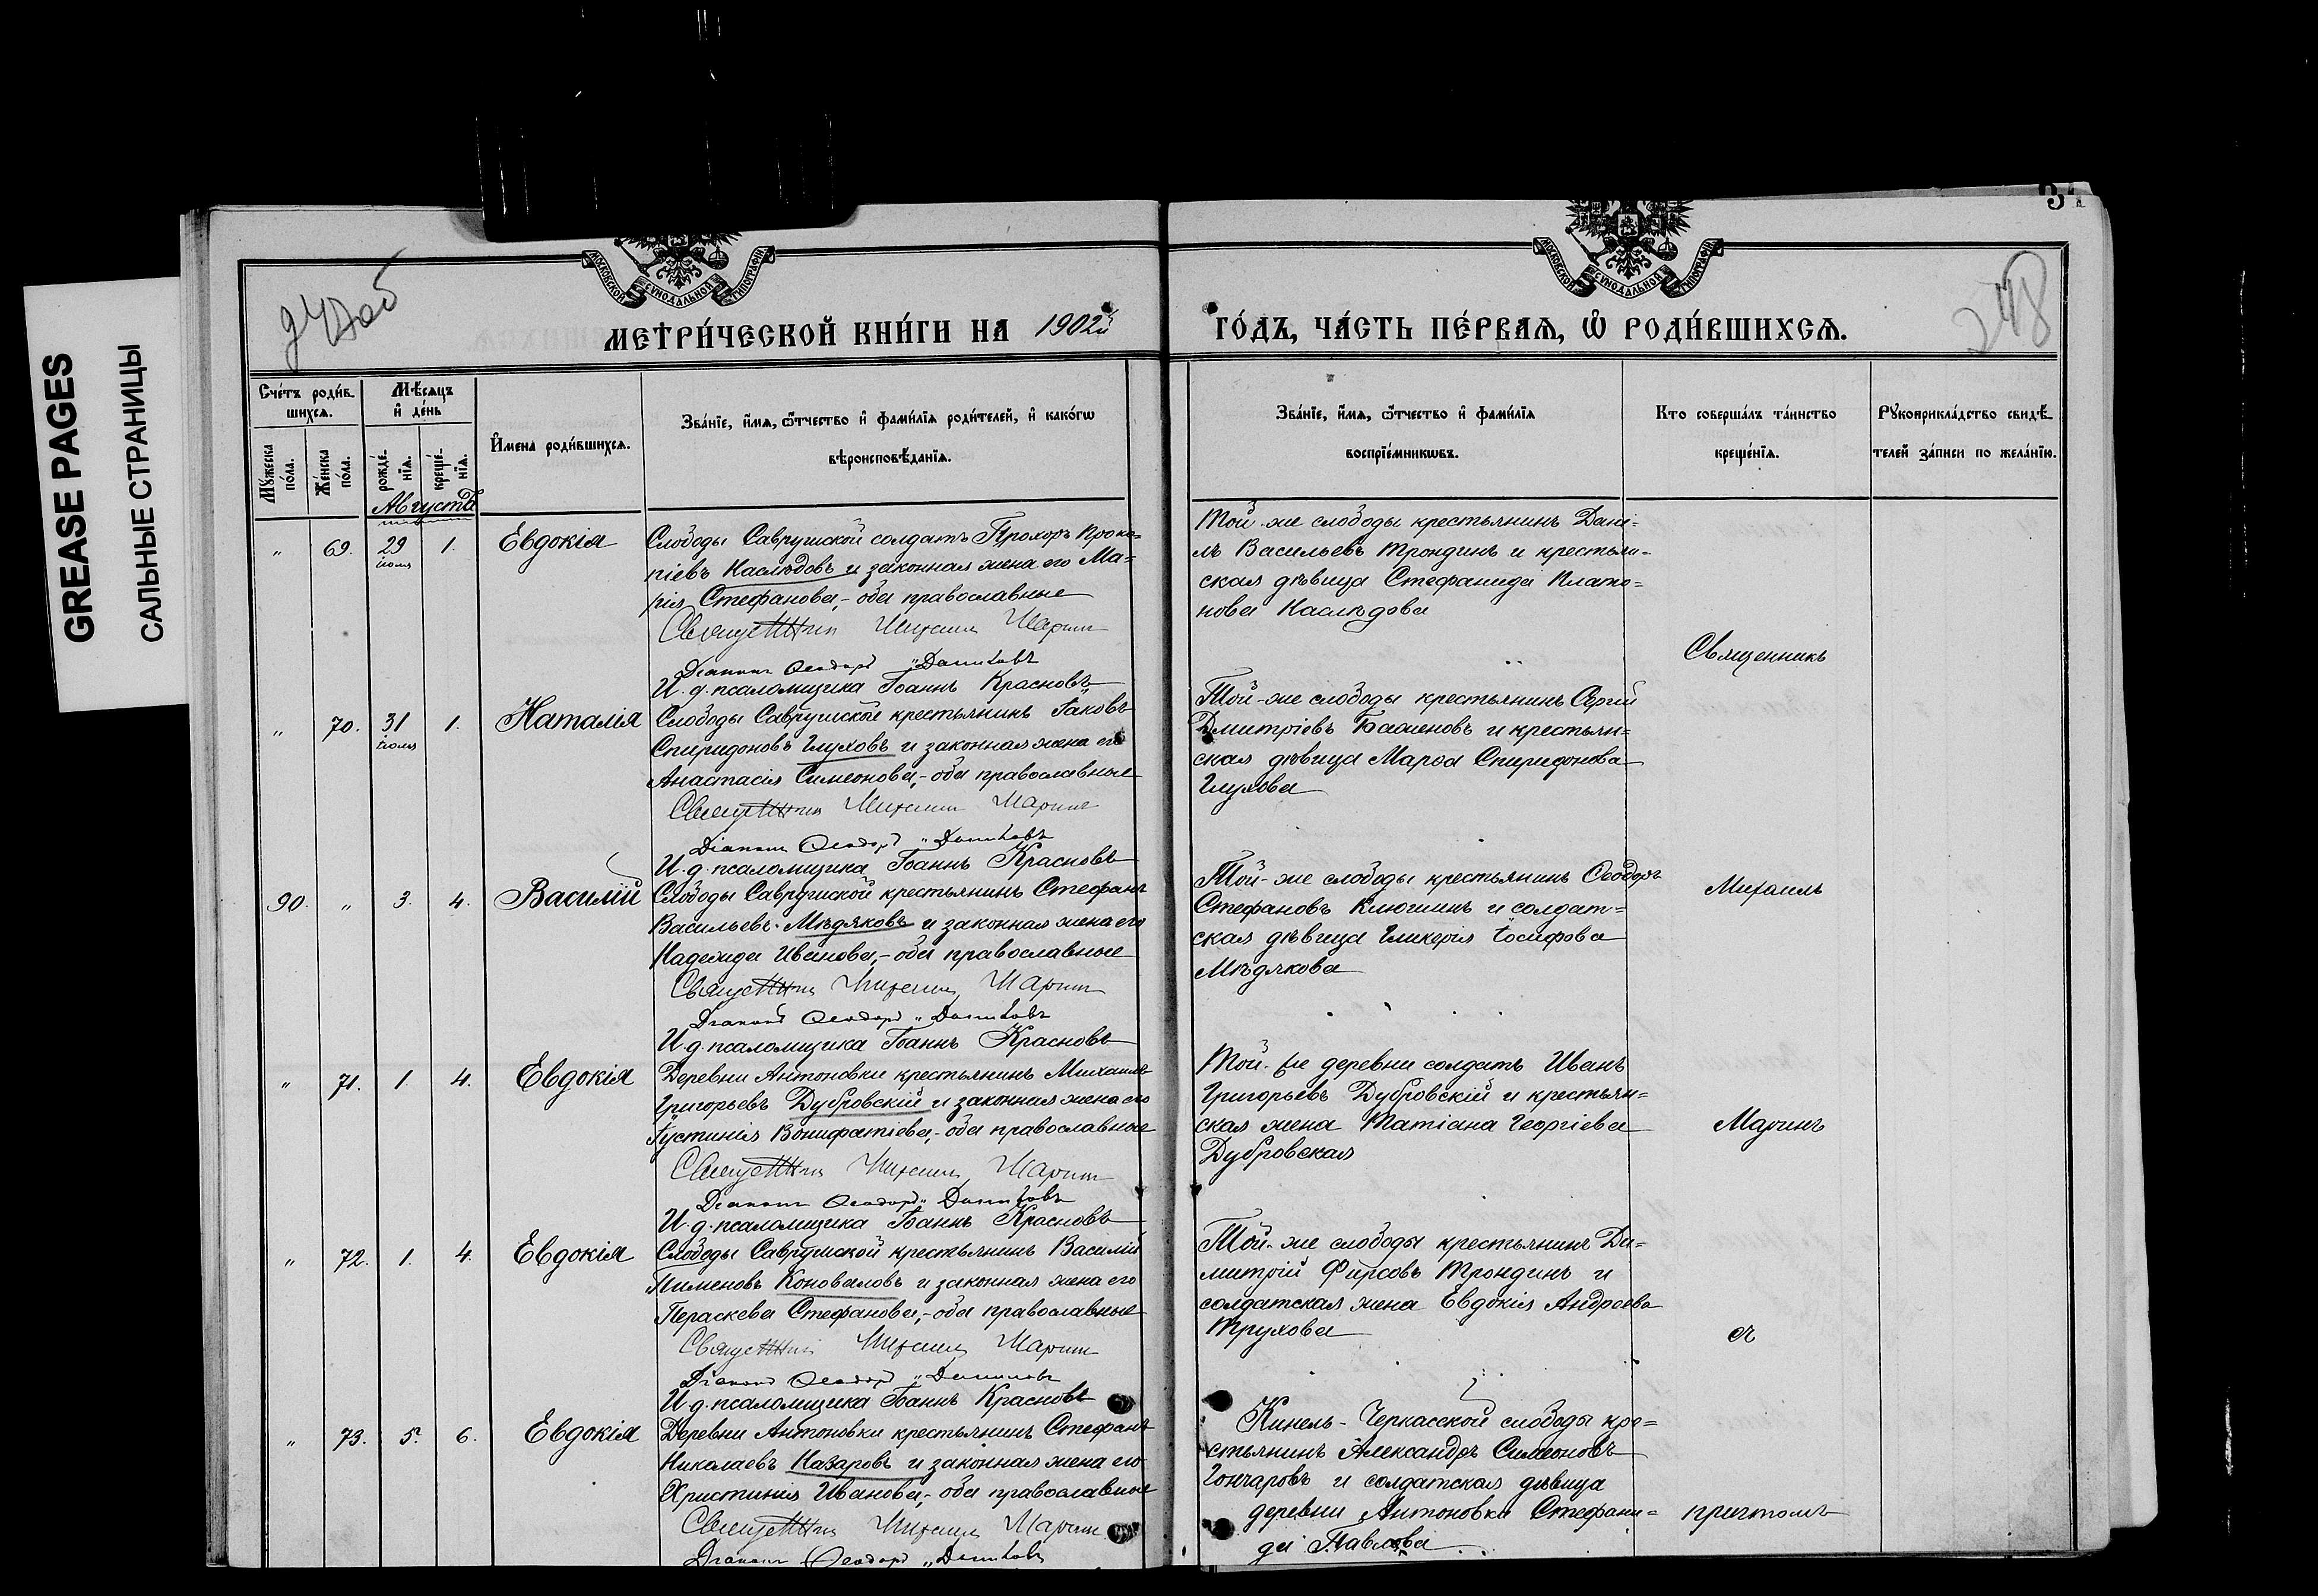 GREASE PAGES
САЛЬНЫЕ СТРАНИЦЫ
247 об
248
МОСКОВСКОЙ СѴНОДАЛЬНОЙ ТИПОГРАФІИ
МОСКОВСКОЙ СѴНОДАЛЬНОЙ ТИПОГРАФІИ
МЕТРИ́ЧЕСКОЙ КНИ́ГИ НА 1902й
ГО́ДЪ, ЧА́СТЬ ПЕ́РВАѦ, Ѡ҆ РОДИ́ВШИХСѦ.
Сче́тъ роди́в-
шихсѧ.
Мѣ́сѧцъ
и҆ де́нь
Мꙋ́жеска
по́ла.
Же́нска
по́ла.
рожде́-
нїѧ.
креще́-
нїѧ.
И҆мена роди́вшихсѧ.
Зва́нїе, и҆́мѧ, ѻ҆́тчество и҆ фами́лїѧ роди́телей, и҆ како́гѡ
вѣроисповѣ́данїѧ.
Зва́нїе, и҆́мѧ, ѻ҆́тчество и҆ фами́лїѧ
воспрїе́мникѡвъ.
Кто соверша́лъ та́инство
креще́нїѧ.
Рꙋкоприкла́дство свидѣ́-
телей за́писи по жела́нїю.
Августъ
„ 69. 29 іюля 1. Евдокія
Слободы Саврушской солдатъ Прохоръ Проко-
піевъ Наслѣдовъ и законная жена его Ма-
рія Стефанова,- оба православные
Священникъ Михаилъ Маринъ
Діаконъ Ѳеодоръ Даниловъ
И. д. псаломщика Іоаннъ Красновъ
Той-же слободы крестьянинъ Дані-
лъ Васильевъ Трондинъ и крестьян-
ская дѣвица Стефанида Плато-
нова Наслѣдова
„ 70. 31 іюля 1. Наталія
Слободы Саврушской крестьянинъ Іаковъ
Спиридоновъ Глуховъ и законная жена его
Анастасія Симеонова,- оба православные
Священникъ Михаилъ Маринъ
Діаконъ Ѳеодоръ Даниловъ
И. д. псаломщика Іоаннъ Красновъ
Той-же слободы крестьянинъ Сергій
Дмитріевъ Баженовъ и крестьян-
ская дѣвица Марѳа Спиридонова
Глухова
90. „ 3. 4. Василій
Слободы Саврушской крестьянинъ Стефанъ
Васильевъ Мѣдяковъ и законная жена его
Надежда Иванова,- оба православные
Священникъ Михаилъ Маринъ
Діаконъ Ѳеодоръ Даниловъ
И. д. псаломщика Іоаннъ Красновъ
Той-же слободы крестьянинъ Ѳеодоръ
Стефановъ Клюгинъ и солдат-
ская дѣвица Гликерія Іосифова
Мѣдякова
„ 71. 1. 4. Евдокія
Деревни Антоновки крестьянинъ Михаилъ
Григорьевъ Дубровскій и законная жена его
Іустинія Вонифатіева,- оба православные
Священникъ Михаилъ Маринъ
Діаконъ Ѳеодоръ Даниловъ
И. д. псаломщика Іоаннъ Красновъ
Той-же деревни солдатъ Иванъ
Григорьевъ Дубровскій и крестьян-
ская жена Татіана Георгіева
Дубровская
„ 72. 1. 4. Евдокія
Слободы Саврушской крестьянинъ Василій
Пименовъ Коноваловъ и законная жена его
Параскева Стефанова,- оба православные
Священникъ Михаилъ Маринъ
Діаконъ Ѳеодоръ Даниловъ
И. д. псаломщика Іоаннъ Красновъ
Той-же слободы крестьянинъ Ди-
митрій Фирсовъ Трондинъ и
солдатская жена Евдокія Андреева
Трухова
„ 73. 5. 6. Евдокія
Деревни Антоновки крестьянинъ Стефанъ
Николаевъ Назаровъ и законная жена его
Христинія Иванова,- оба православные
Священникъ Михаилъ Маринъ
Діаконъ Ѳеодоръ Даниловъ
Кинель-Черкасской слободы кре-
стьянинъ Александръ Симеоновъ
Гончаровъ и солдатская дѣвица
деревни Антоновки Стефани-
да Павлова
Священникъ
Михаилъ
Маринъ
съ
причтомъ